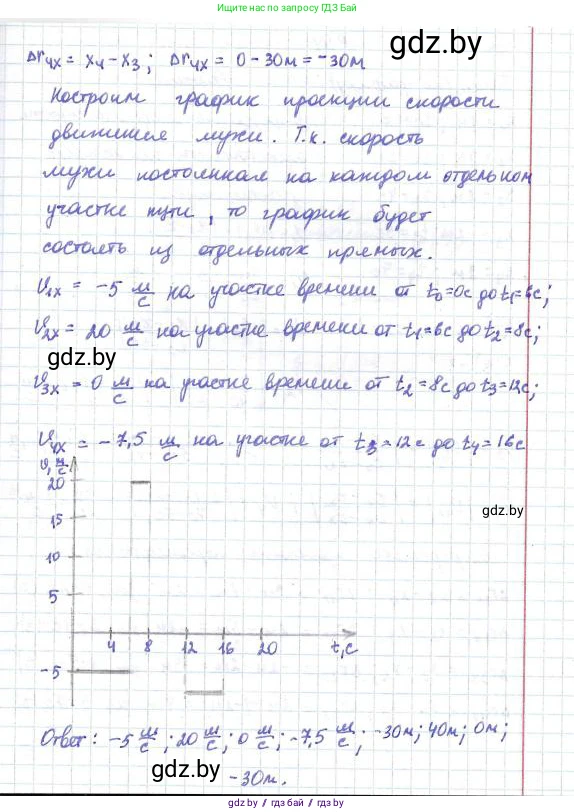 Ищите нас по запросу ГДЗ бай
Δr₄ₓ = x₄ - x₃; Δr₄ₓ = 0 - 30м = -30м
gdz.by
Построим график проекции скорости
движения мухи. Т.к. скорость
мухи постоянная на каждом отдельном
участке пути, то график будет
состоять из отдельных прямых.
υ₁ₓ = -5 м/с на участке времени от t₀=0с до t₁=6с;
υ₂ₓ = 20 м/с на участке времени от t₁=6с до t₂=8с;
gdz.by
υ₃ₓ = 0 м/с на участке времени от t₂=8с до t₃=12с;
υ₄ₓ = -7,5 м/с на участке от t₃=12с до t₄=16с
υ, м/с
20
gdz.by
15
10
5
4 8 12 16 20 t,с
-5
Ответ: -5 м/с; 20 м/с; 0 м/с; -7,5 м/с; -30м; 40м; 0м;
gdz.by
-30м.
gdz.by / гдз бай / gdz bai